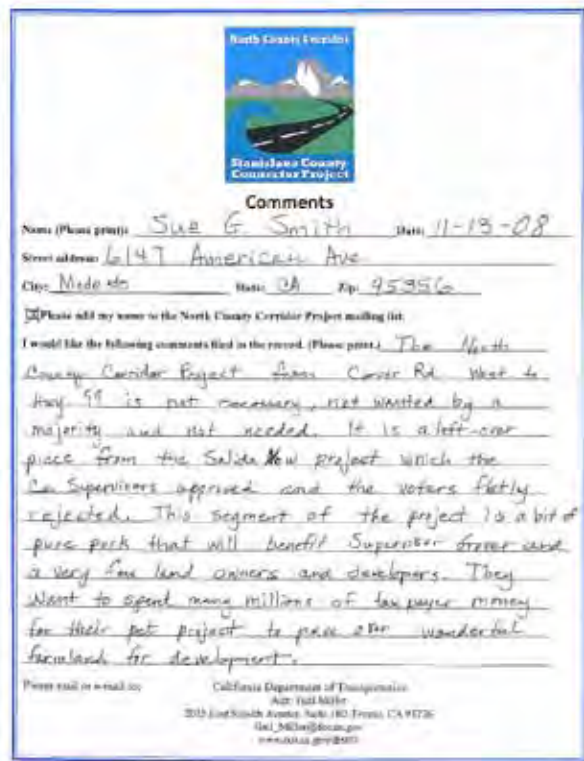 North County Corridor
Stanislaus County
Connector Project
Comments
Name (Please print): Sue G. Smith Date: 11-13-08
Street address: 6147 American Ave
City: Modesto State: CA Zip: 95356
Please add my name to the North County Corridor Project mailing list.
I would like the following comments filed in the record. (Please print.) The North
County Corridor Project from Carver Rd. West to
Hwy 99 is not necessary, not wanted by a
majority and not needed. It is a left-over
piece from the Salida Now project which the
Co. Supervisors approved and the voters flatly
rejected. This segment of the project is a bit of
pure pork that will benefit Supervisor Grover and
a very few land owners and developers. They
want to spend many millions of tax payer money
for their pet project to pave over wonderful
farmland for development.
Please mail or e-mail to:
California Department of Transportation
Attn: Gail Miller
2015 East Shields Avenue, Suite 100 Fresno, CA 93726
Gail_Miller@dot.ca.gov